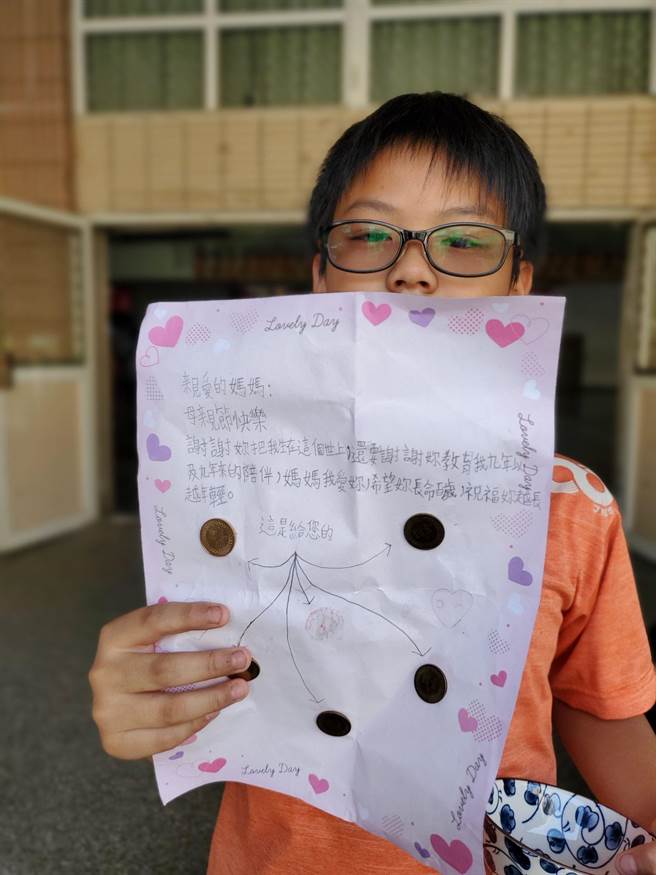 Lovely Day
親愛的媽媽：
母親節快樂
謝謝妳把我生在這個世上，還要謝謝妳教育我九年以
及九年來的陪伴，媽媽我愛妳，希望妳長命百歲，祝福妳越長
越年輕。
這是給您的
Lovely Day
Lovely Day
Lovely Day
Lovely Day